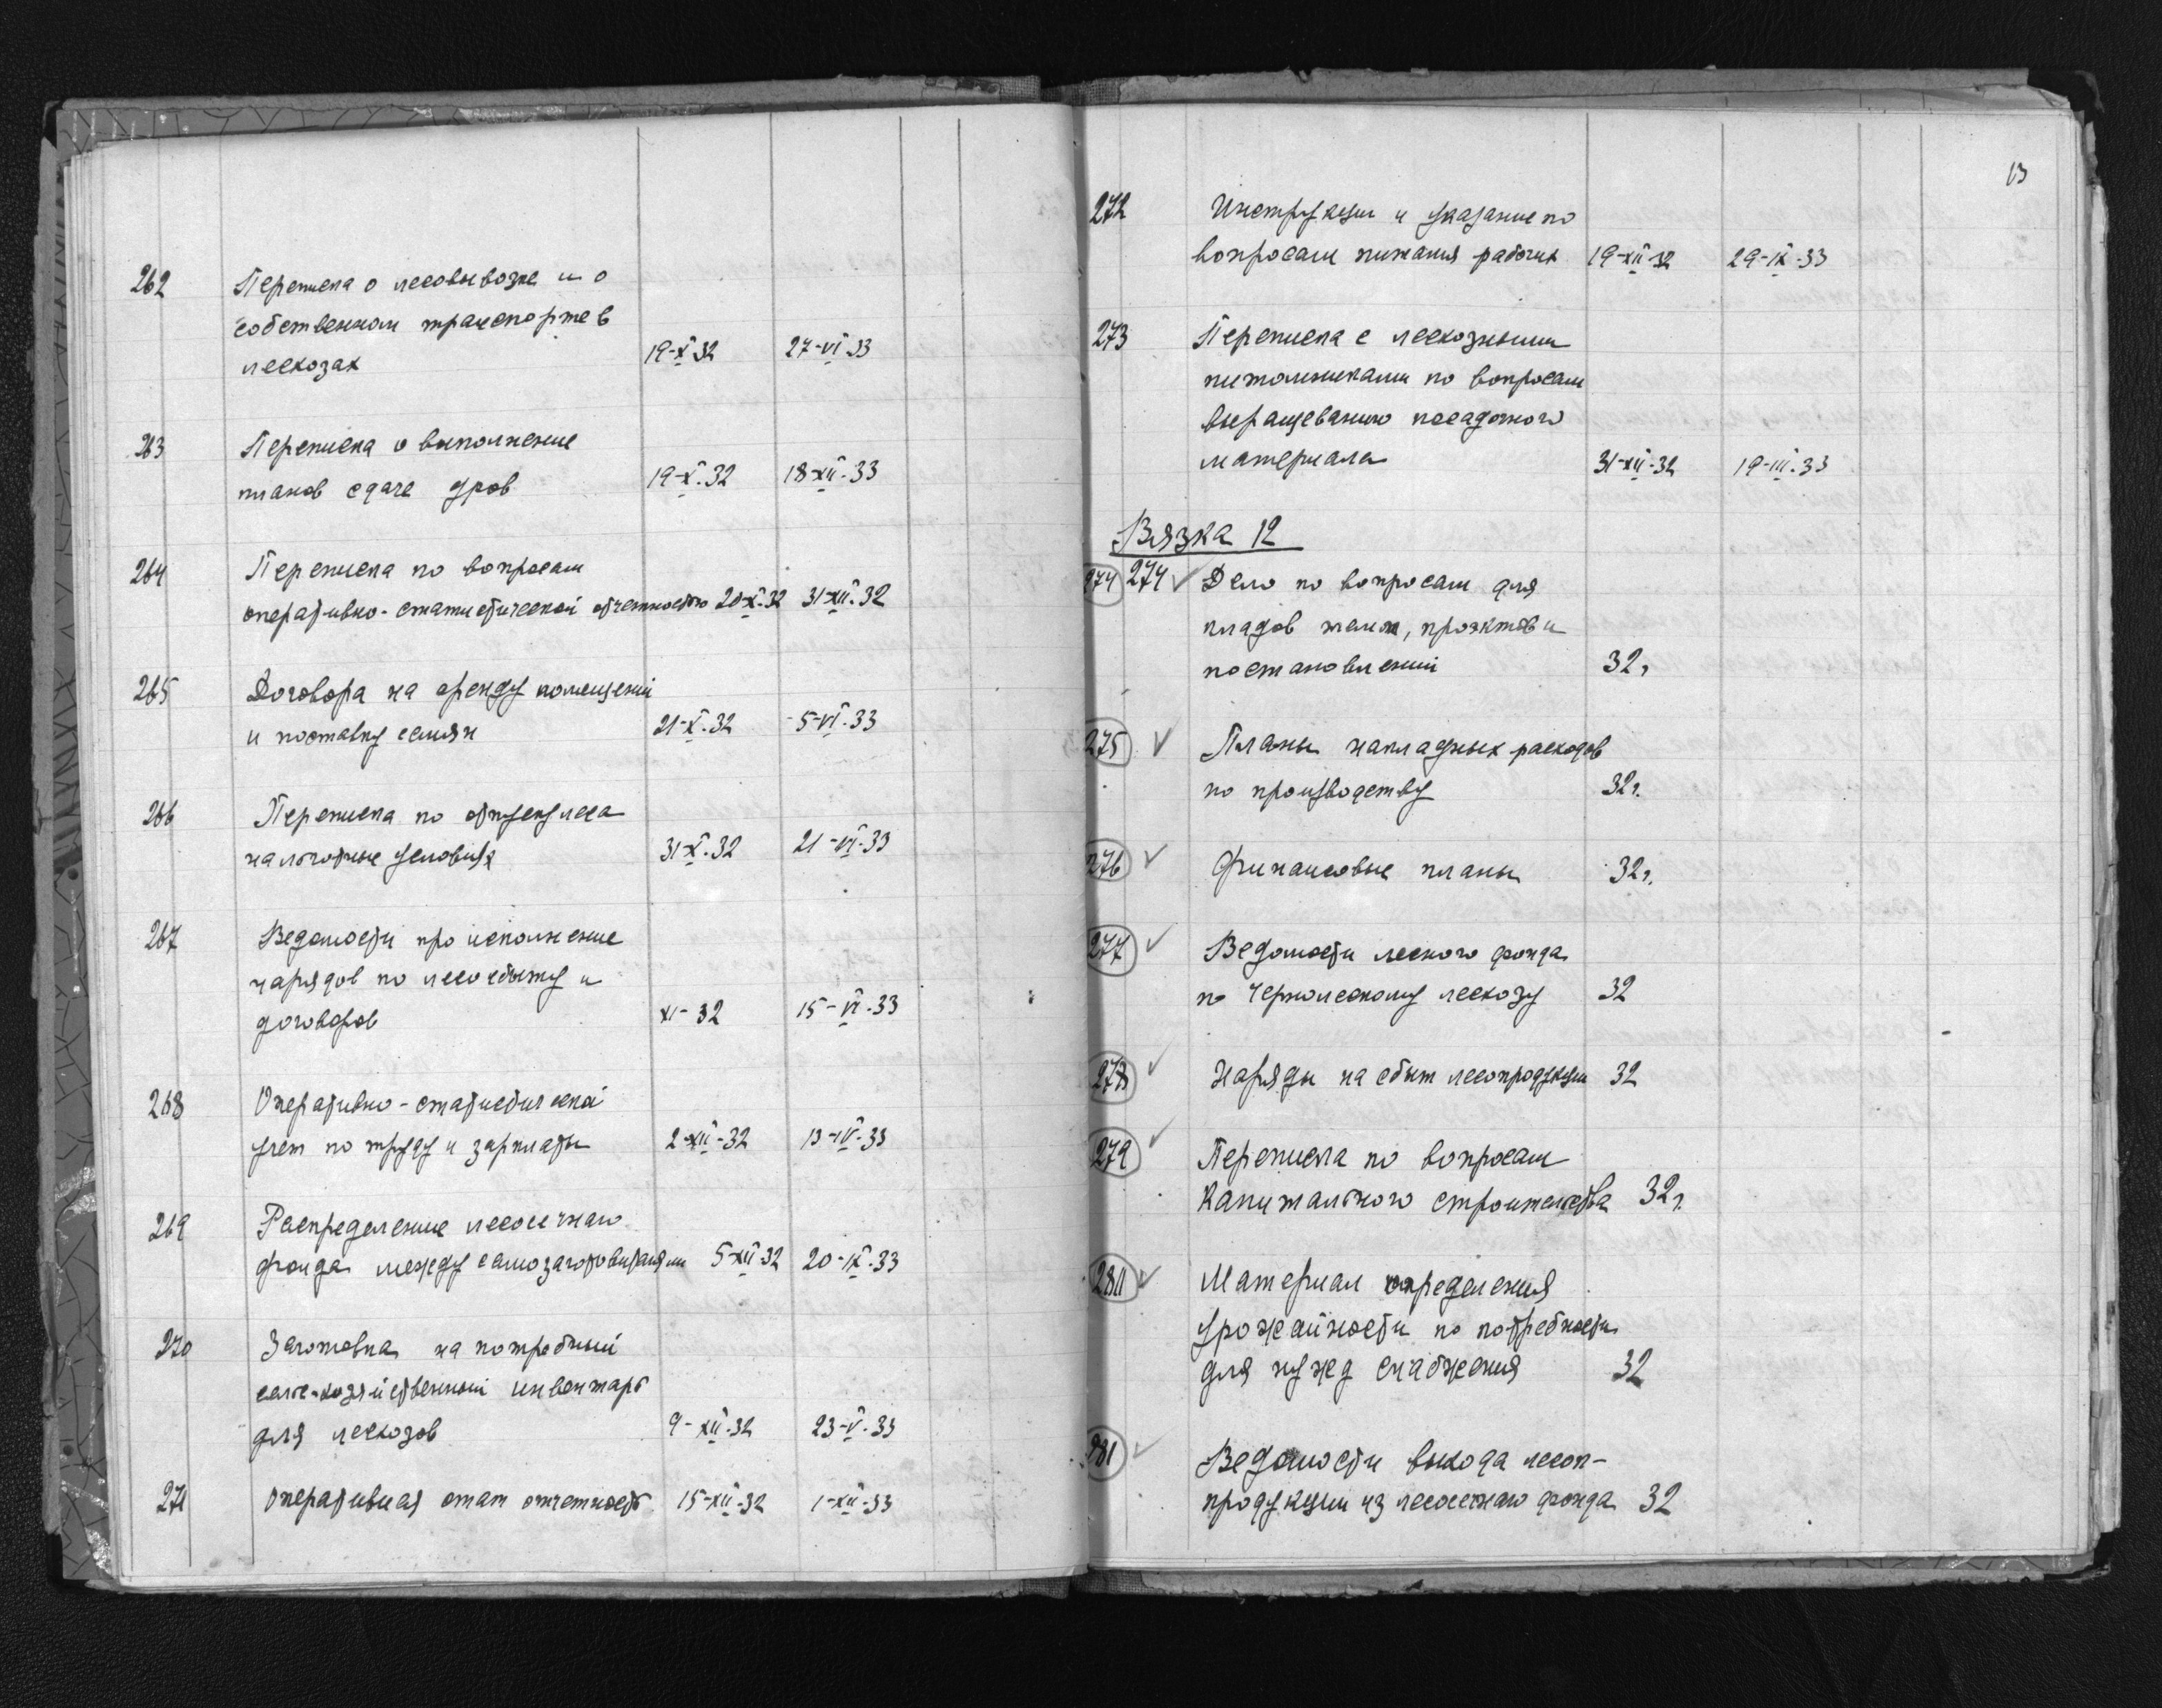 262 Переписка о лесовывозке и о
собственном транспорте в
лесхозах 19-X-32 27-VI-33
263 Переписка о выполнение
планов сдаче дров 19-X-32 18-XII-33
264 Переписка по вопросам
оперативно-статистической отчетностью 20-X-32 31-XII-32
265 Договора на оренду помещений
и поставку семян 21-X-32 5-VI-33
266 Переписка по отпуску леса
на льготные условия 31-X-32 21-VI-33
267 Ведомости про исполнение
нарядов по лесосбыту и
договоров XI-32 15-VI-33
268 Оперативно-статистический
учет по труду и зарплаты 2-XII-32 13-IV-33
269 Распределение лесосечного
фонда между самозаготовителями 5-XII-32 20-IX-33
270 Заготовка на потребный
сельс-хозяйственный инвентарь
для лесхозов 9-XII-32 23-V-33
271 Оперативная стат отчетность 15-XII-32 1-XII-33
13
272 Инструкции и указание по
вопросам питания рабочих 19-XII-32 29-IX-33
273 Переписка с лесхозными
питомниками по вопросам
выращеванию посадочного
материала 31-XII-32 19-III-33
Вязка 12
274 274 Дело по вопросам для
, проэктов и
постановлений 32 г.
275 Планы накладных расходов
по производству 32 г.
276 Финансовые планы 32 г.
277 Ведомости лесного фонда
по Чернолескому лесхозу 32
278 Наряды на сбыт лесопродукции 32
279 Переписка по вопросам
капитального строительства 32 г.
280 Материал определения
урожайности по потребности
для нужд снабжения 32
281 Ведомости выхода лесоп-
продукции из лесосечного фонда 32